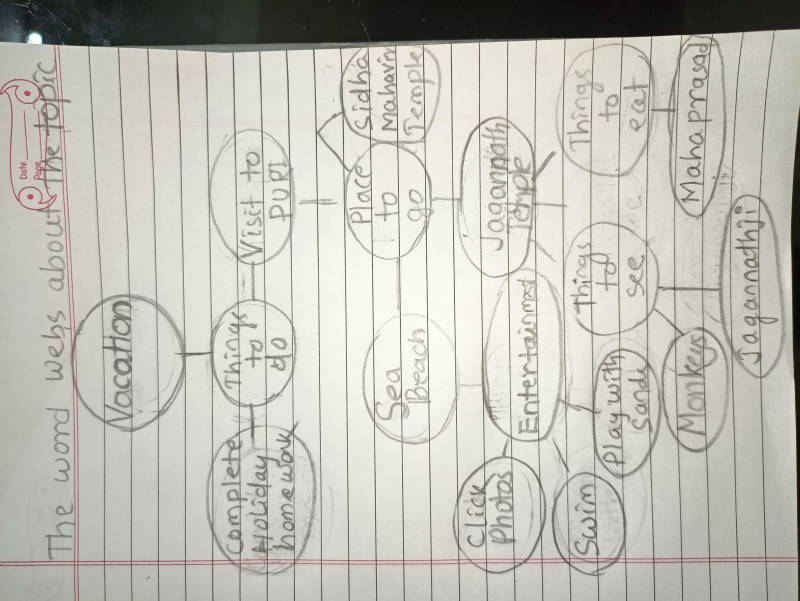 Date
Page
The word webs about the topic
Vacation
Complete
Holiday
homework
Things
to
do
Visit to
PURI
Sea
Beach
Place
to
go
Sidha
Mahavir
Temple
Click
Photos
Entertainmost
Jagannath
Temple
Swim
Play with
Sand
Things
to
see
Things
to
eat
Monkeys
Jagannathji
Mahaprasad